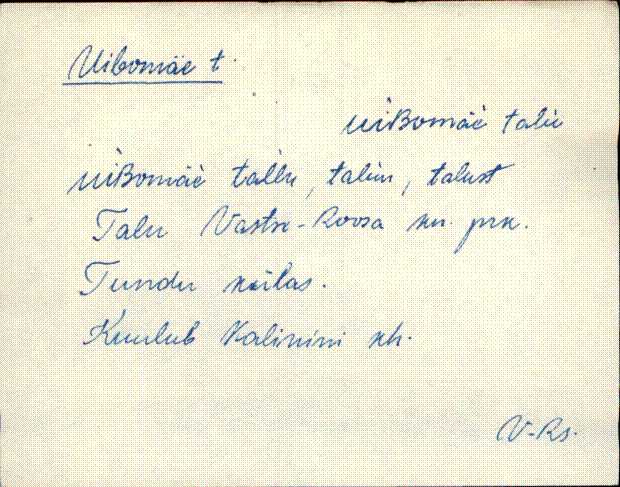 Uibomäe t.
uìʙomäè talu
uìʙomäè tallu, talun, talust
Talu Vastse-Roosa kn. prk.
Tundu külas.
Kuulub Kalinini kh.
V-Rs.